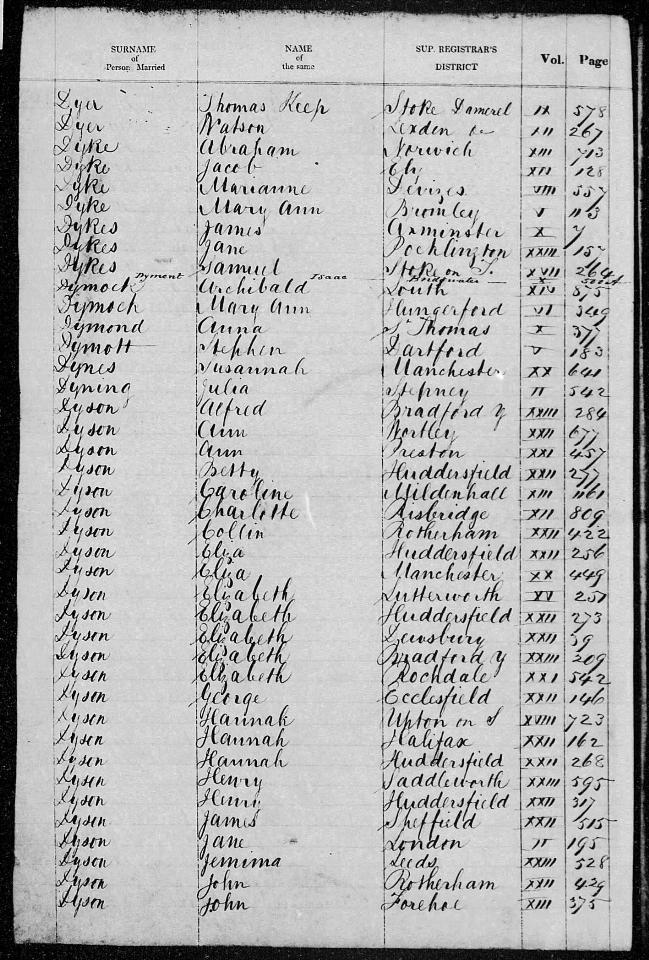 SURNAME of Person Married NAME of the same SUP. REGISTRAR'S DISTRICT Vol. Page
Dyer Thomas Keep Stoke Damerel IX 578
Dyer Watson Lexden &c XII 267
Dyke Abraham Norwich XIII 713
Dyke Jacob Ely XIV 128
Dyke Marianne Devizes VIII 557
Dyke Mary Ann Bromley V 113
Dykes James Axminster X 7
Dykes Jane Pocklington XXIII 157
Dykes Samuel Stoke on T. XVII 264
Dyment Isaac Bridgwater X
Dymock Archibald South XIV 875
Dymock Mary Ann Hungerford VI 349
Dymond Anna St Thomas X 377
Dymott Stephen Dartford V 183
Dynes Susannah Manchester XX 641
Dyning Julia Stepney II 542
Dyson Alfred Bradford Y XXIII 284
Dyson Ann Wortley XXII 677
Dyson Ann Preston XXI 457
Dyson Betty Huddersfield XXII 277
Dyson Caroline Mildenhall XIII 1161
Dyson Charlotte Risbridge XII 809
Dyson Collin Rotherham XXII 422
Dyson Eliza Huddersfield XXII 256
Dyson Eliza Manchester XX 449
Dyson Elizabeth Lutterworth XV 257
Dyson Elizabeth Huddersfield XXII 273
Dyson Elizabeth Dewsbury XXII 59
Dyson Elizabeth Bradford Y XXIII 209
Dyson Elizabeth Rochdale XXI 542
Dyson George Ecclesfield XXII 146
Dyson Hannah Upton on S XVIII 723
Dyson Hannah Halifax XXII 162
Dyson Hannah Huddersfield XXII 268
Dyson Henry Saddleworth XXIII 595
Dyson Henry Huddersfield XXII 317
Dyson James Sheffield XXII 515
Dyson Jane London II 195
Dyson Jemima Leeds XXIII 528
Dyson John Rotherham XXII 429
Dyson John Forehoe XIII 375